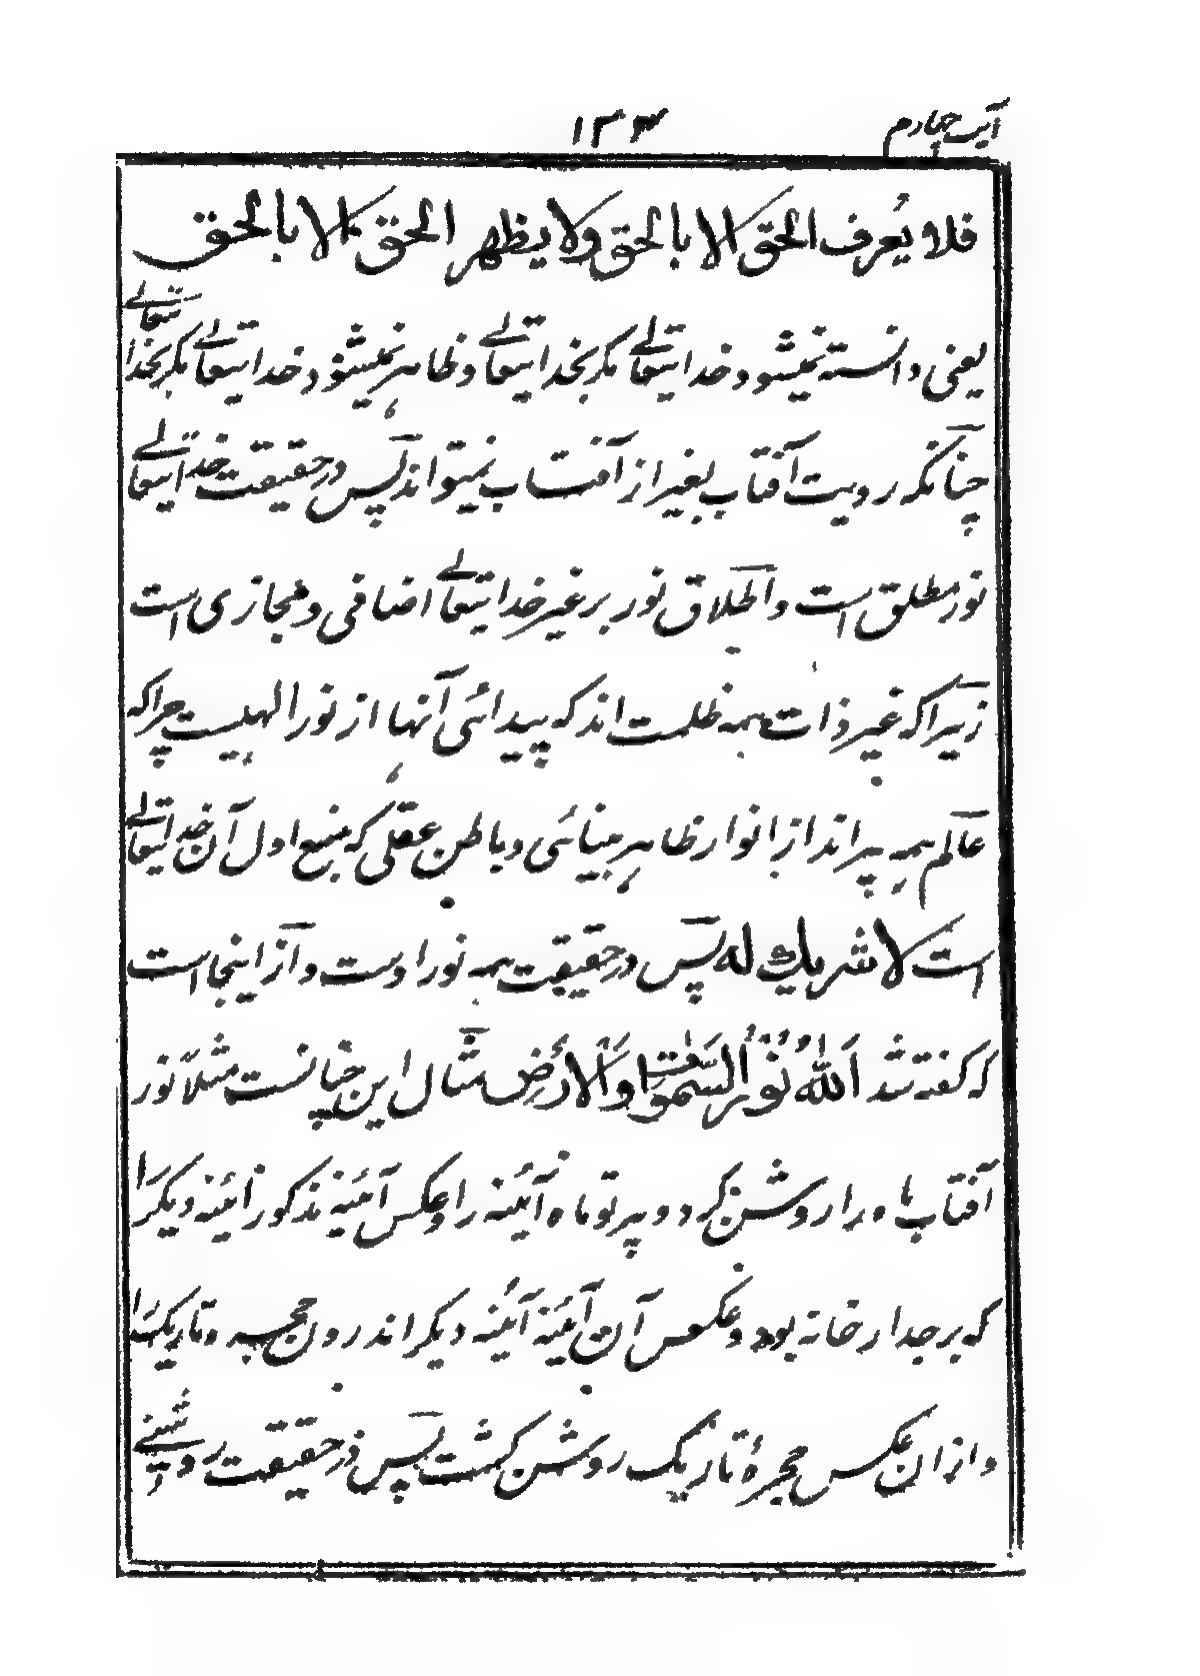 آیت چهارم ۱۳۴
فلا یُعرف الحق الا بالحق ولا یظهر الحق الا بالحق
یعنی دانسته نمیشود خدایتعالے مگر بخدایتعالے و ظاهر نمیشود خدایتعالے مگر بخدا یتعالے
چنانکه رویت آفتاب بغیر از آفتاب نمیتواند پس در حقیقت خدایتعالے
نور مطلق است و اطلاق نور بر غیر خدایتعالے اضافی و مجازی است
زیرا که غیر ذات همه ظلمت اند که پیدائی آنها از نور الهیست چرا که
عالم همه پر اند از انوار ظاهر بینائی و باطن عقلی که منبع اول آن خدایتعالے
است لا شریك له پس در حقیقت همه نور اوست و از اینجا است
که گفته شد اَللهُ نُوْرُ السَّمٰوٰاتِ وَالْاَرْضِ مثال این چنانست مثلاً نور
آفتاب ماه را روشن کرد و پرتو ماه آئینه را و عکس آئینه مذکور آئینه دیگر را
که بر جدار خانه بود و عکس آن آئینه آئینه دیگر اندرون حجره تاریک را
و از ان عکس حجرهٔ تاریک روشن گشت پس در حقیقت روشنے